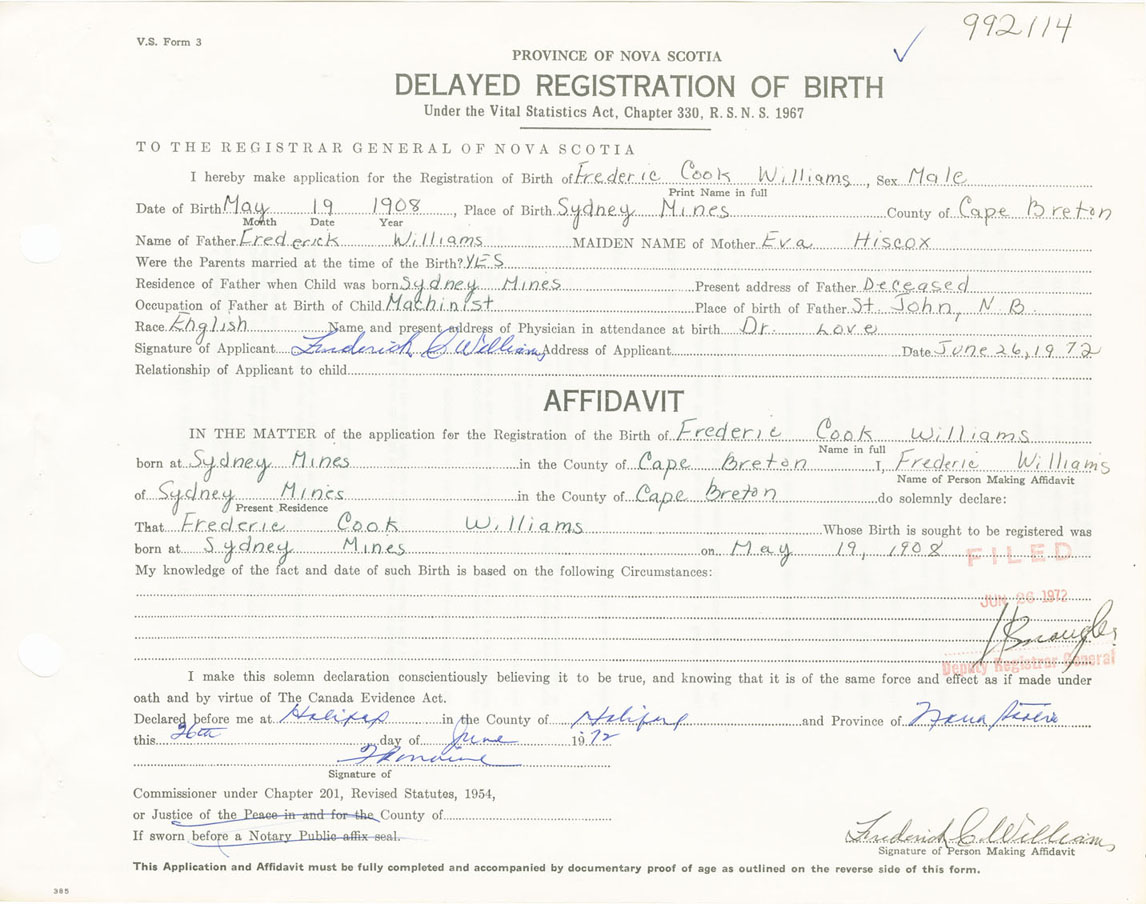 992114
V.S. Form 3
PROVINCE OF NOVA SCOTIA
DELAYED REGISTRATION OF BIRTH
Under the Vital Statistics Act, Chapter 330, R. S. N. S. 1967
TO THE REGISTRAR GENERAL OF NOVA SCOTIA
I hereby make application for the Registration of Birth of Frederic Cook Williams, Sex Male
Print Name in full
Date of Birth May 19 1908, Place of Birth Sydney Mines County of Cape Breton
Month Date Year
Name of Father Frederick Williams MAIDEN NAME of Mother Eva Hiscox
Were the Parents married at the time of the Birth? YES
Residence of Father when Child was born Sydney Mines Present address of Father Deceased
Occupation of Father at Birth of Child Machinist Place of birth of Father St. John, N.B.
Race English Name and present address of Physician in attendance at birth Dr. Love
Signature of Applicant Frederick C Williams Address of Applicant Date June 26, 1972
Relationship of Applicant to child
AFFIDAVIT
IN THE MATTER of the application for the Registration of the Birth of Frederic Cook Williams
Name in full
born at Sydney Mines in the County of Cape Breton I, Frederic Williams
Name of Person Making Affidavit
of Sydney Mines in the County of Cape Breton do solemnly declare:
Present Residence
That Frederic Cook Williams Whose Birth is sought to be registered was
born at Sydney Mines on May 19, 1908
FILED
My knowledge of the fact and date of such Birth is based on the following Circumstances:
JUN 26 1972
Deputy Registrar General
I make this solemn declaration conscientiously believing it to be true, and knowing that it is of the same force and effect as if made under
oath and by virtue of The Canada Evidence Act.
Declared before me at Halifax in the County of Halifax and Province of Nova Scotia
this 26th day of June 1972
Signature of
Commissioner under Chapter 201, Revised Statutes, 1954,
or Justice of the Peace in and for the County of
If sworn before a Notary Public affix seal.
Frederick C. Williams
Signature of Person Making Affidavit
This Application and Affidavit must be fully completed and accompanied by documentary proof of age as outlined on the reverse side of this form.
385